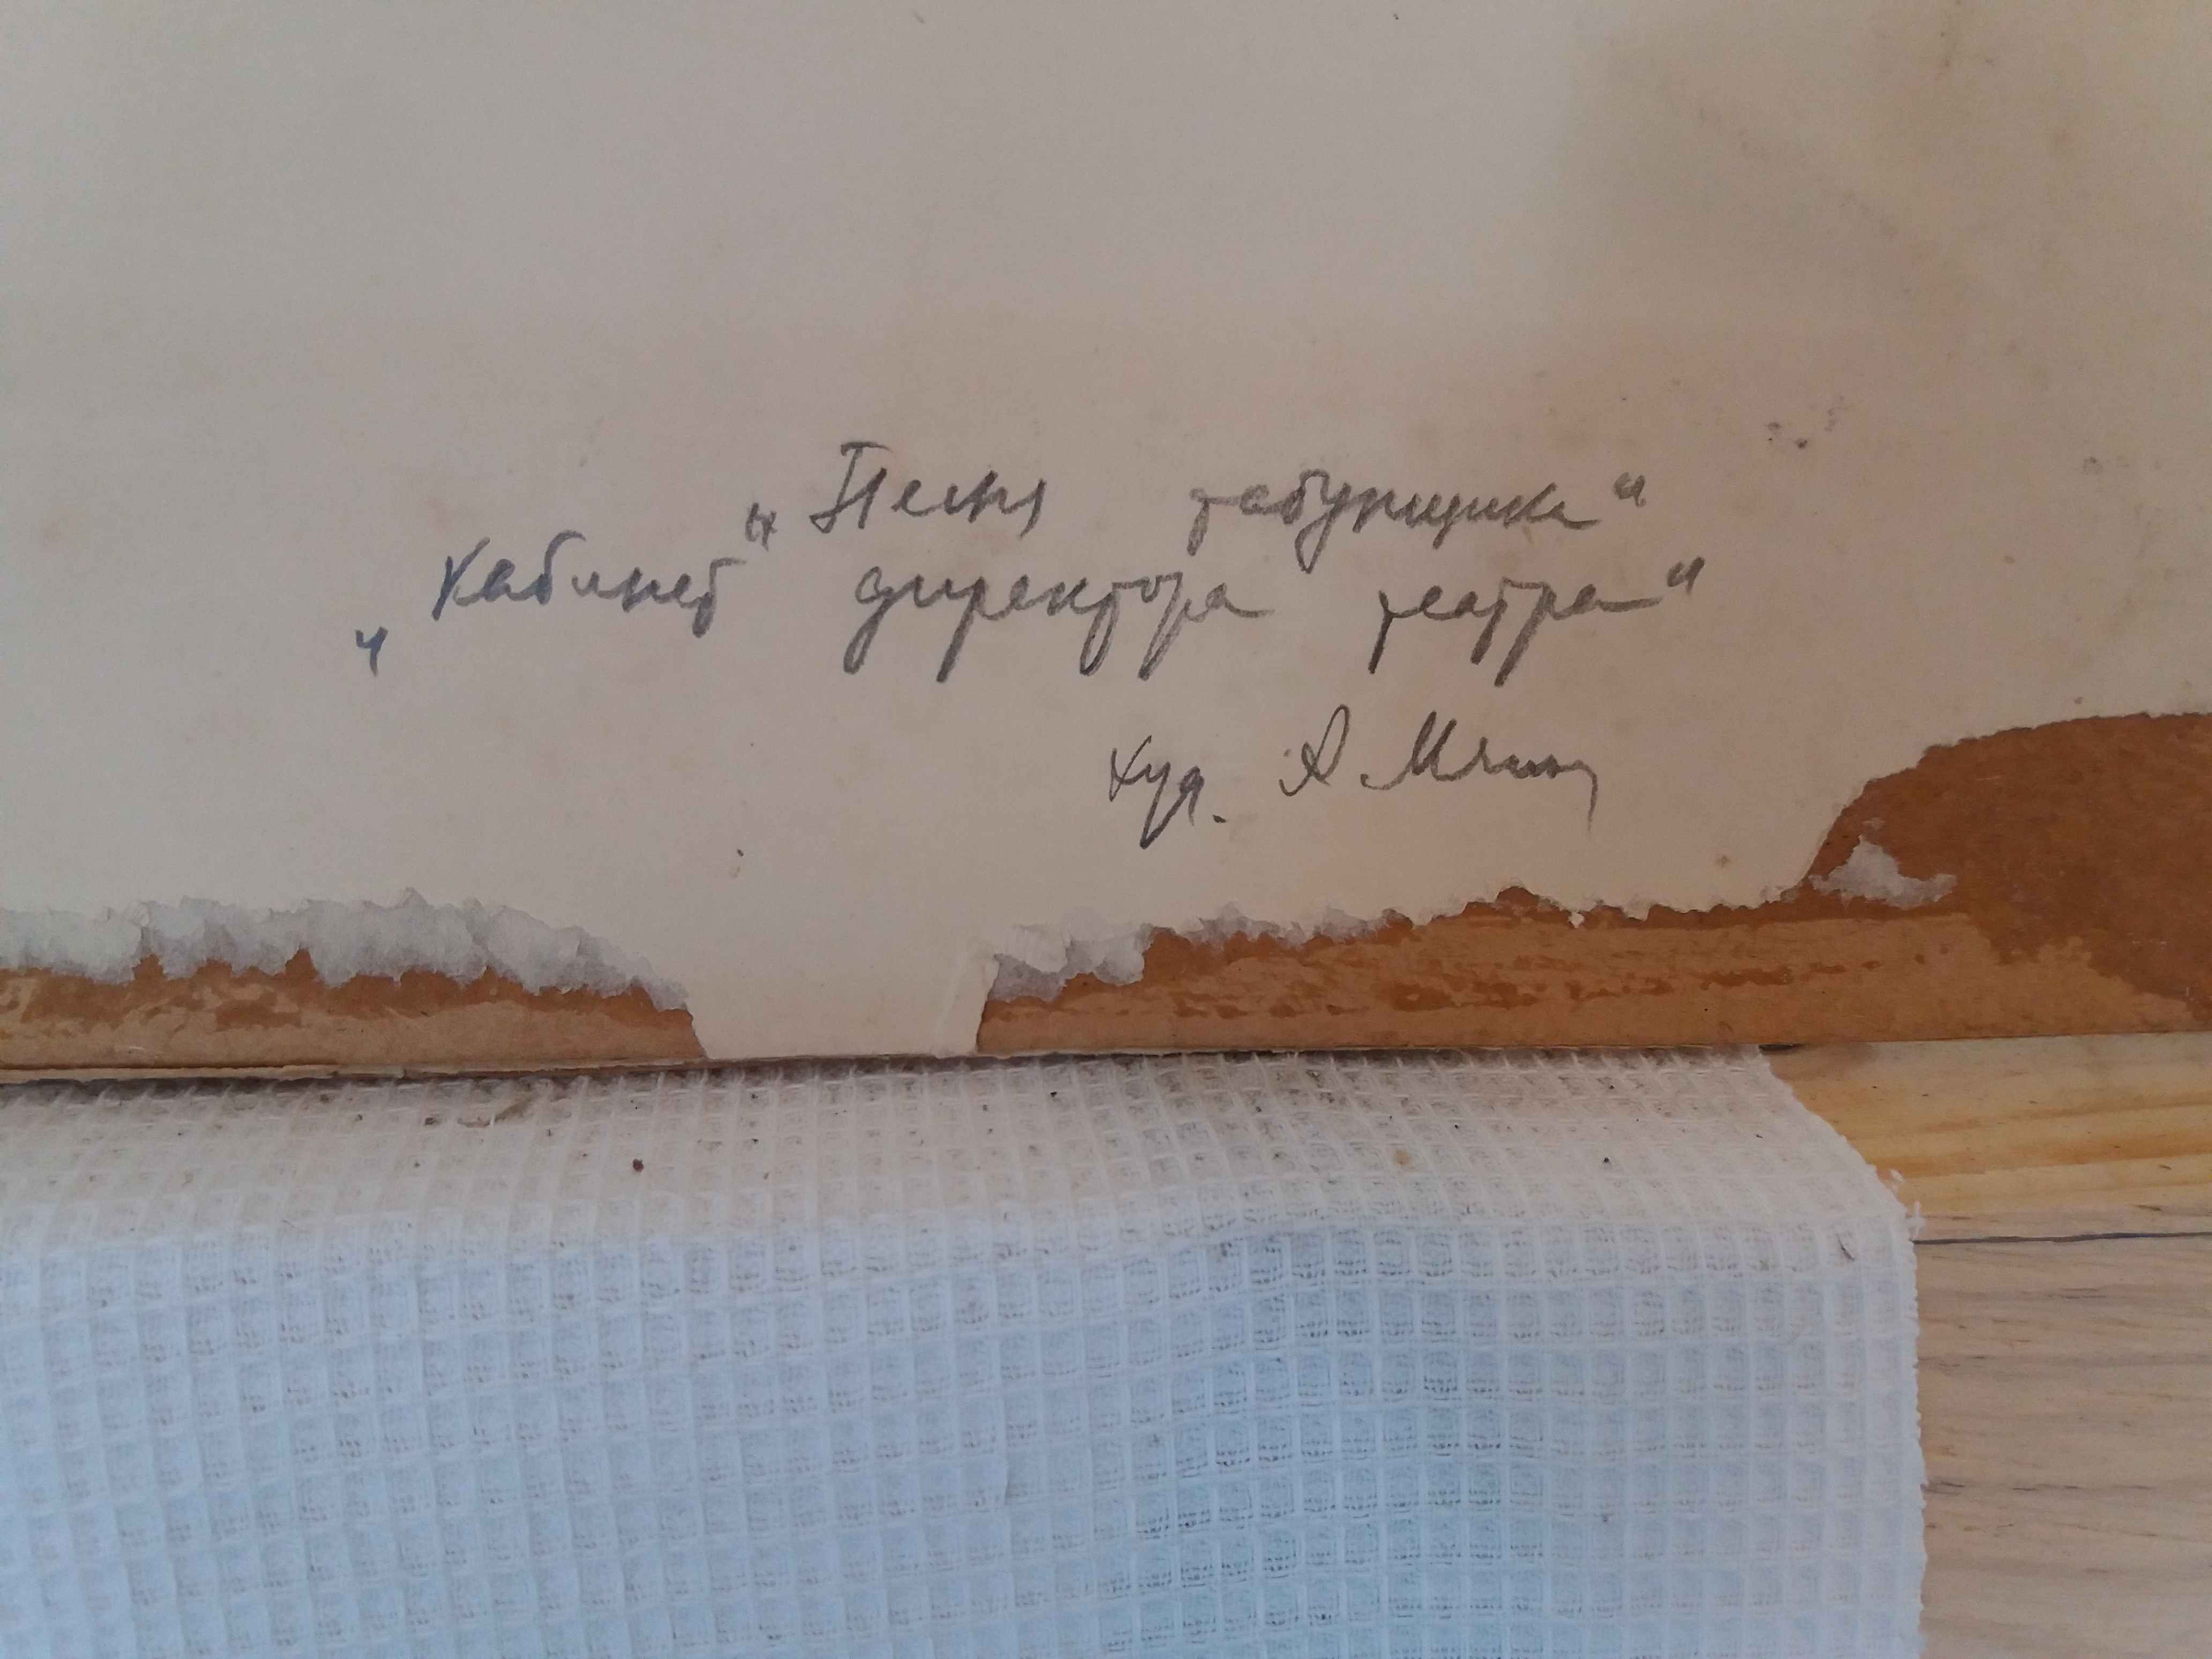 „Песня табунщика“
„Кабинет директора театра“
худ. А. Мягков